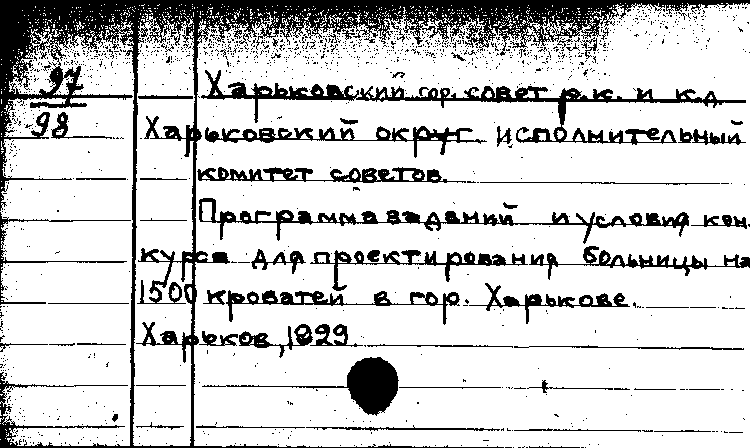 97
98
Харьковский гор. совет р.к. и к.д
Харьковский округ. исполнительный
комитет советов.
Программа заданий и условия кон-
курса для проектирования больницы на
1500 кроватей в гор. Харькове.
Харьков, 1929